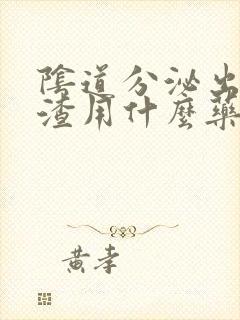 陰道分泌出
渣用什麼藥
黃孝